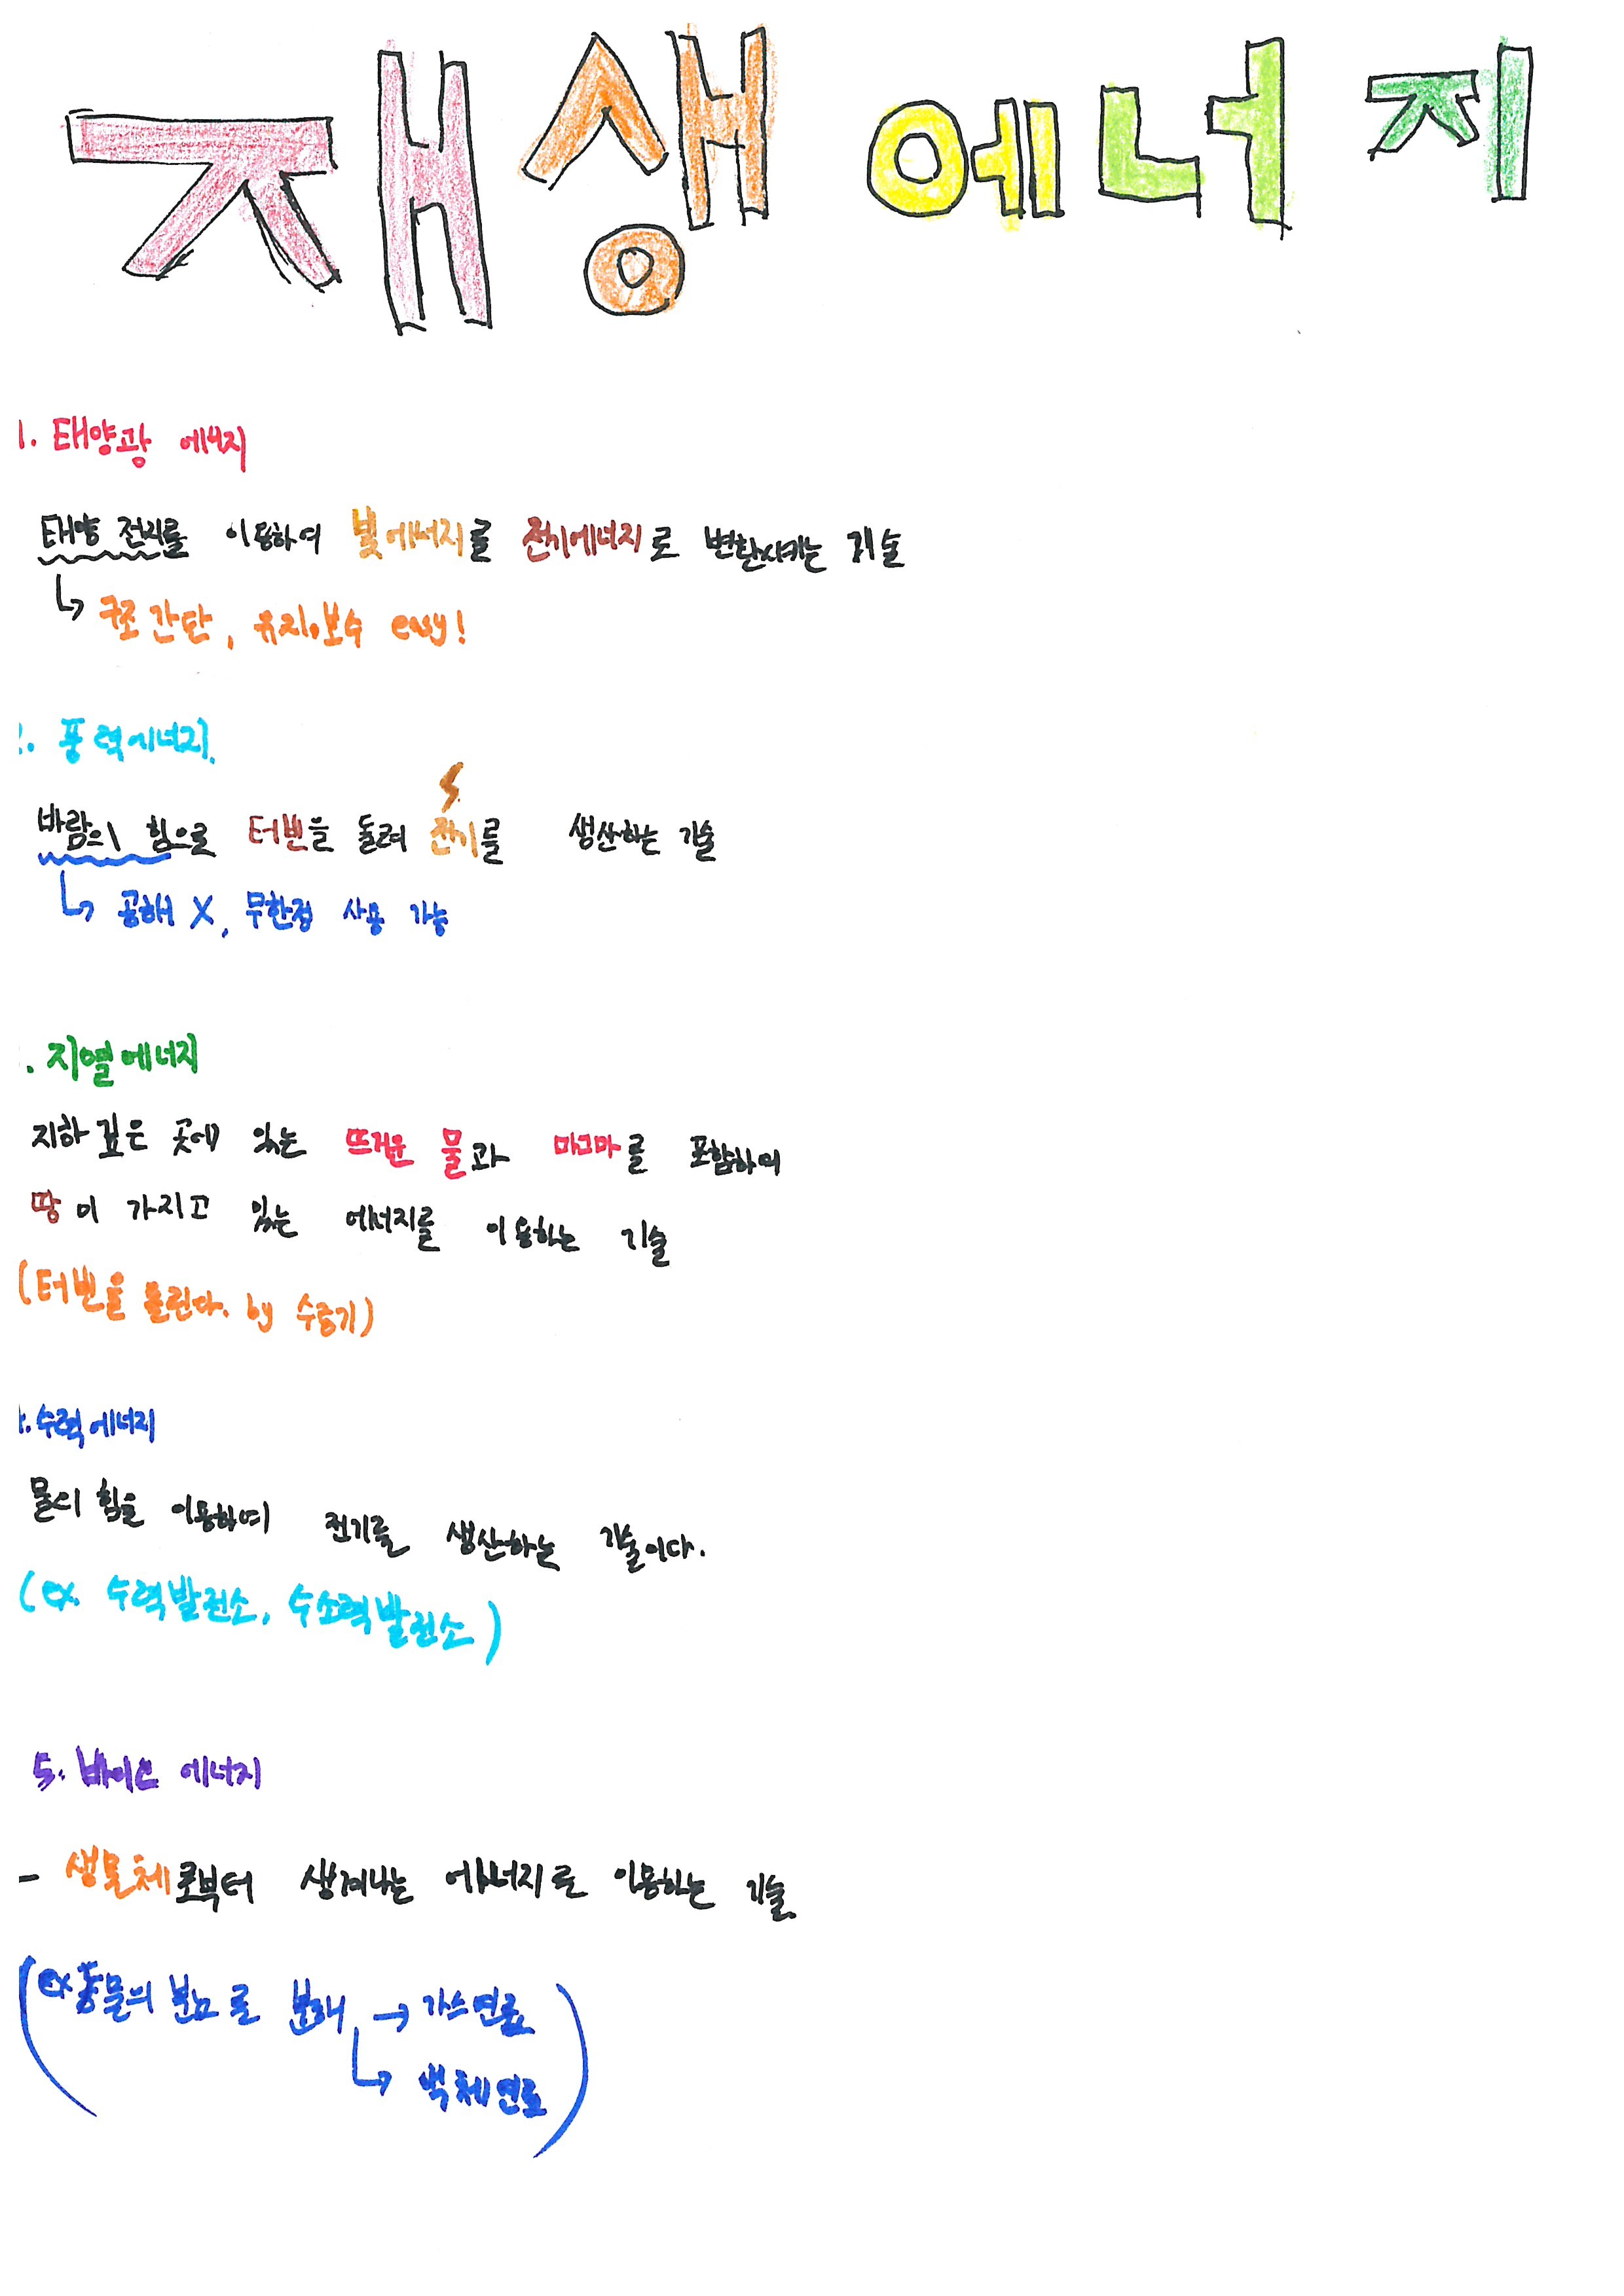 재생 에너지
1. 태양광 에너지
태양 전지를 이용하여 빛에너지를 전기에너지로 변환시키는 기술
↳ 구조 간단, 유지•보수 easy!
. 풍력에너지.
바람의 힘으로 터빈을 돌려 전기를 생산하는 기술
↳ 공해 X, 무한정 사용 가능
. 지열에너지
지하 깊은 곳에 있는 뜨거운 물과 마그마를 포함하여
땅이 가지고 있는 에너지를 이용하는 기술
(터빈을 돌린다. by 수증기)
. 수력에너지
물의 힘을 이용하여 전기를 생산하는 기술이다.
(ex. 수력발전소, 수소력발전소)
5. 바이오 에너지
- 생물체로부터 생겨나는 에너지를 이용하는 기술
(ex 동물의 분뇨를 분해 → 가스연료
↳ 액체연료)